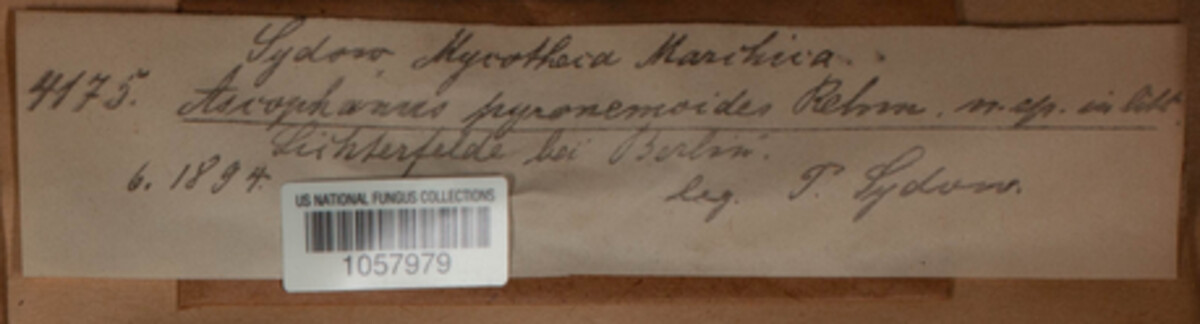 Sydow Mycotheca Marchica.
4175. Ascophanus pyronemoides Rehm. n. sp. in litt.
Lichterfelde bei Berlin.
6. 1894. leg. P. Sydow.
US NATIONAL FUNGUS COLLECTIONS
1057979